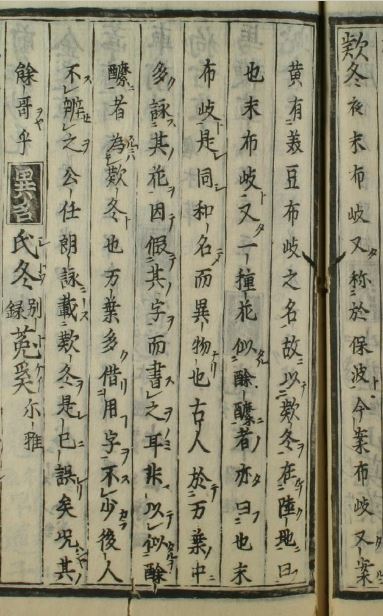 欵冬夜末布岐又称於保波今案布岐又案
黄有義豆布岐之名故以欵冬在陸地曰
也末布岐又一種花似酴醿者亦曰也末
布岐是同和名而異物也古人於万葉中
多詠其花因假其字而書之耳非以似酴
醿者為欵冬也万葉多借用字不少後人
不辨之公任朗詠載欵冬是已誤矣况其
餘哥乎 異名 氏冬別録菟奚尓雅